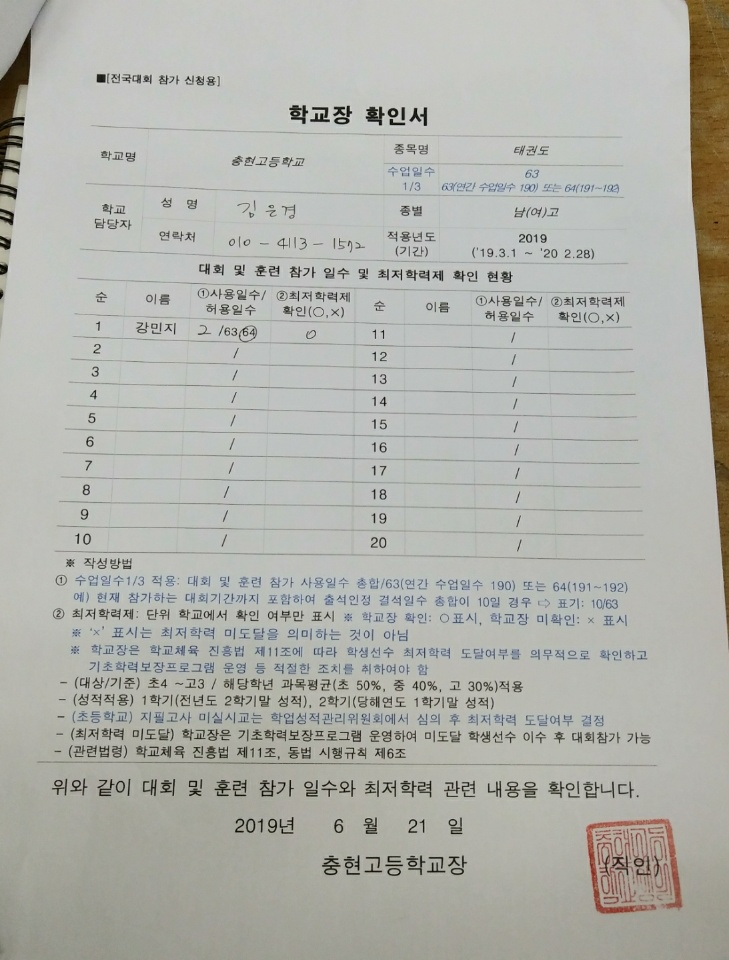 ■[전국대회 참가 신청용]
학교장 확인서
학교명 충현고등학교 종목명 태권도
수업일수 1/3 63
63(연간 수업일수 190) 또는 64(191~192)
학교 담당자 성 명 김은경 종별 남(여)고
연락처 010-4113-1572 적용년도 (기간) 2019 ('19.3.1 ~ '20 2.28)
대회 및 훈련 참가 일수 및 최저학력제 확인 현황
순 이름 ①사용일수/허용일수 ②최저학력제 확인(○,×) 순 이름 ①사용일수/허용일수 ②최저학력제 확인(○,×)
1 강민지 2 /63(64) ○ 11 /
2 / 12 /
3 / 13 /
4 / 14 /
5 / 15 /
6 / 16 /
7 / 17 /
8 / 18 /
9 / 19 /
10 / 20 /
※ 작성방법
① 수업일수1/3 적용: 대회 및 훈련 참가 사용일수 총합/63(연간 수업일수 190) 또는 64(191~192)
예) 현재 참가하는 대회기간까지 포함하여 출석인정 결석일수 총합이 10일 경우 ⇨ 표기: 10/63
② 최저학력제: 단위 학교에서 확인 여부만 표시 ※ 학교장 확인: ○표시, 학교장 미확인: × 표시
※ '×' 표시는 최저학력 미도달을 의미하는 것이 아님
※ 학교장은 학교체육 진흥법 제11조에 따라 학생선수 최저학력 도달여부를 의무적으로 확인하고
기초학력보장프로그램 운영 등 적절한 조치를 취하여야 함
- (대상/기준) 초4 ~고3 / 해당학년 과목평균(초 50%, 중 40%, 고 30%)적용
- (성적적용) 1학기(전년도 2학기말 성적), 2학기(당해연도 1학기말 성적)
- (초등학교) 지필고사 미실시교는 학업성적관리위원회에서 심의 후 최저학력 도달여부 결정
- (최저학력 미도달) 학교장은 기초학력보장프로그램 운영하여 미도달 학생선수 이수 후 대회참가 가능
- (관련법령) 학교체육 진흥법 제11조, 동법 시행규칙 제6조
위와 같이 대회 및 훈련 참가 일수와 최저학력 관련 내용을 확인합니다.
2019년 6 월 21 일
충현고등학교장 (직인)